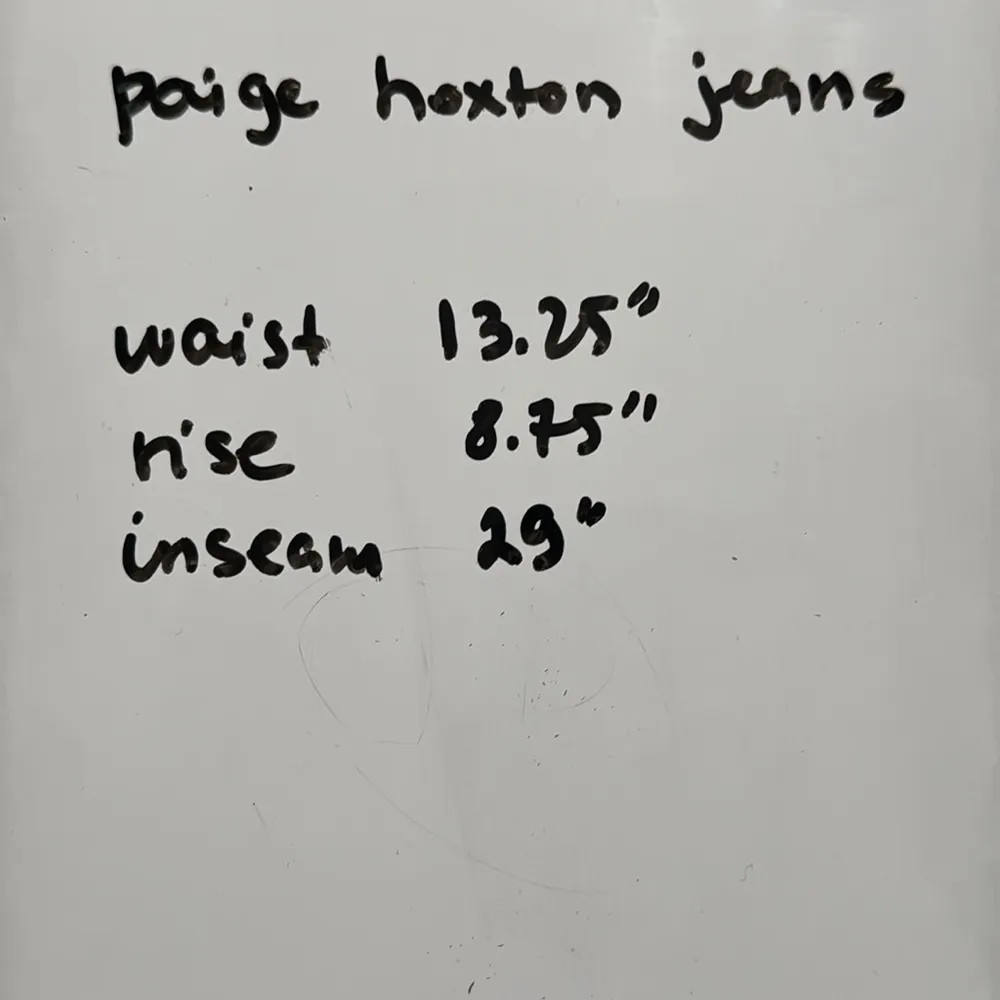 paige hoxton jeans
waist 13.25"
rise 8.75"
inseam 29"